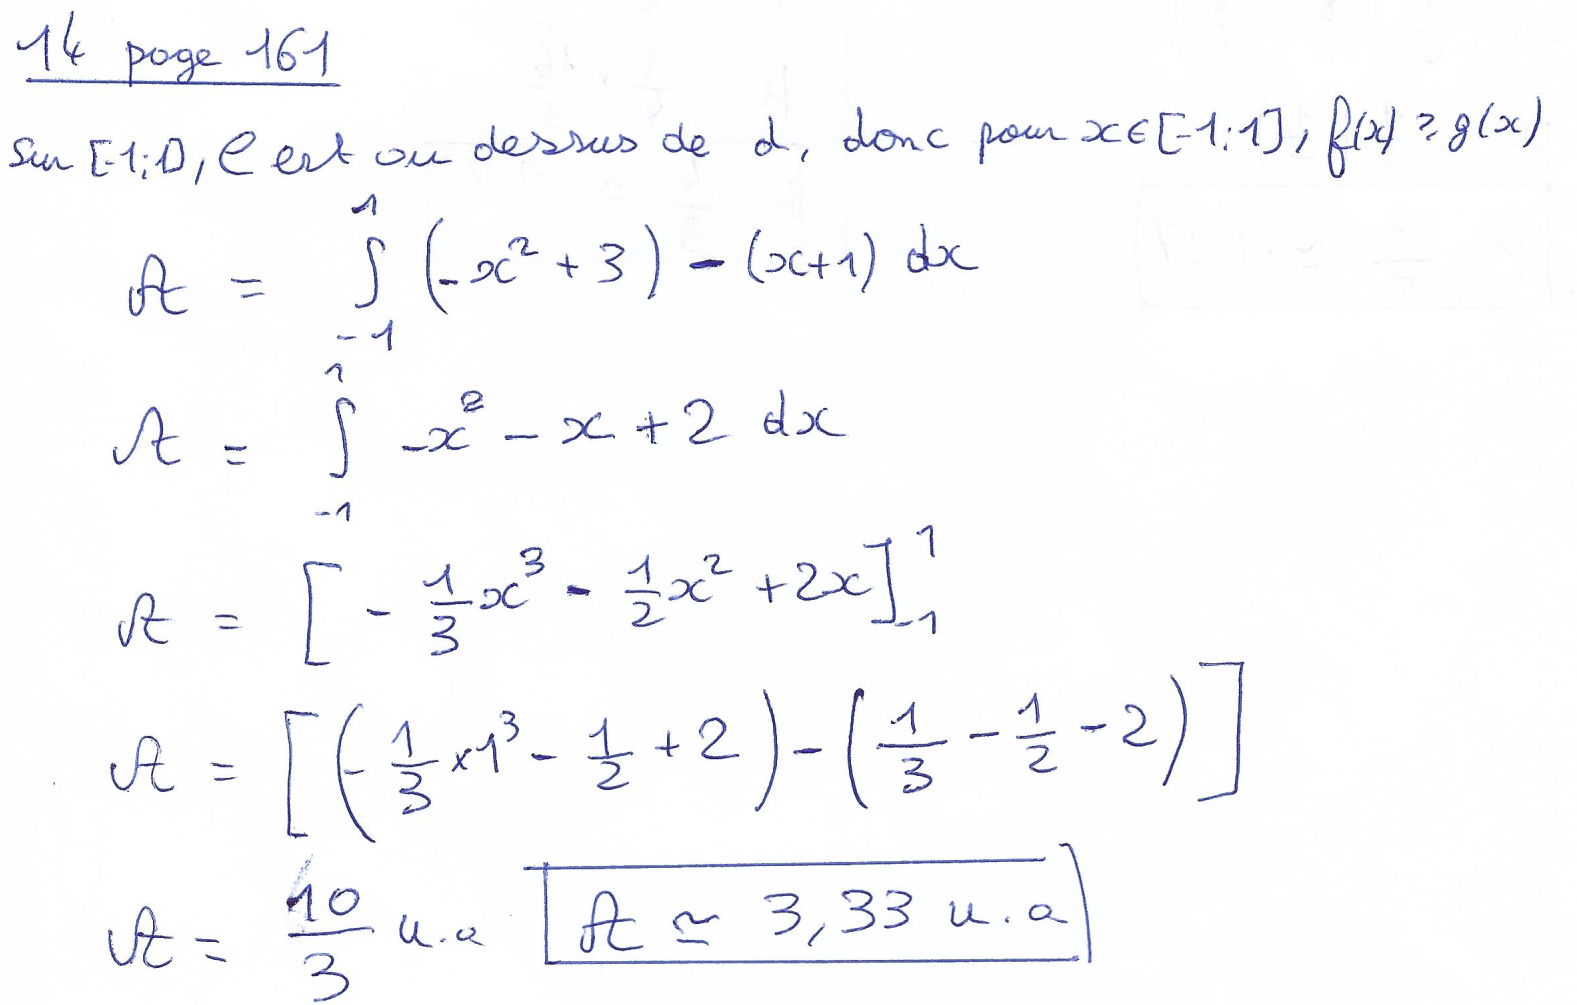 14 page 161
Sur [-1;1], C est au dessus de d, donc pour x∈[-1;1], f(x) ≥ g(x)
A = ∫_{-1}^{1} (-x² + 3) - (x+1) dx
A = ∫_{-1}^{1} -x² - x + 2 dx
A = [ - 1/3 x³ - 1/2 x² + 2x ]_{-1}^{1}
A = [ ( - 1/3 × 1³ - 1/2 + 2 ) - ( 1/3 - 1/2 - 2 ) ]
A = 10/3 u.a A ≃ 3,33 u.a